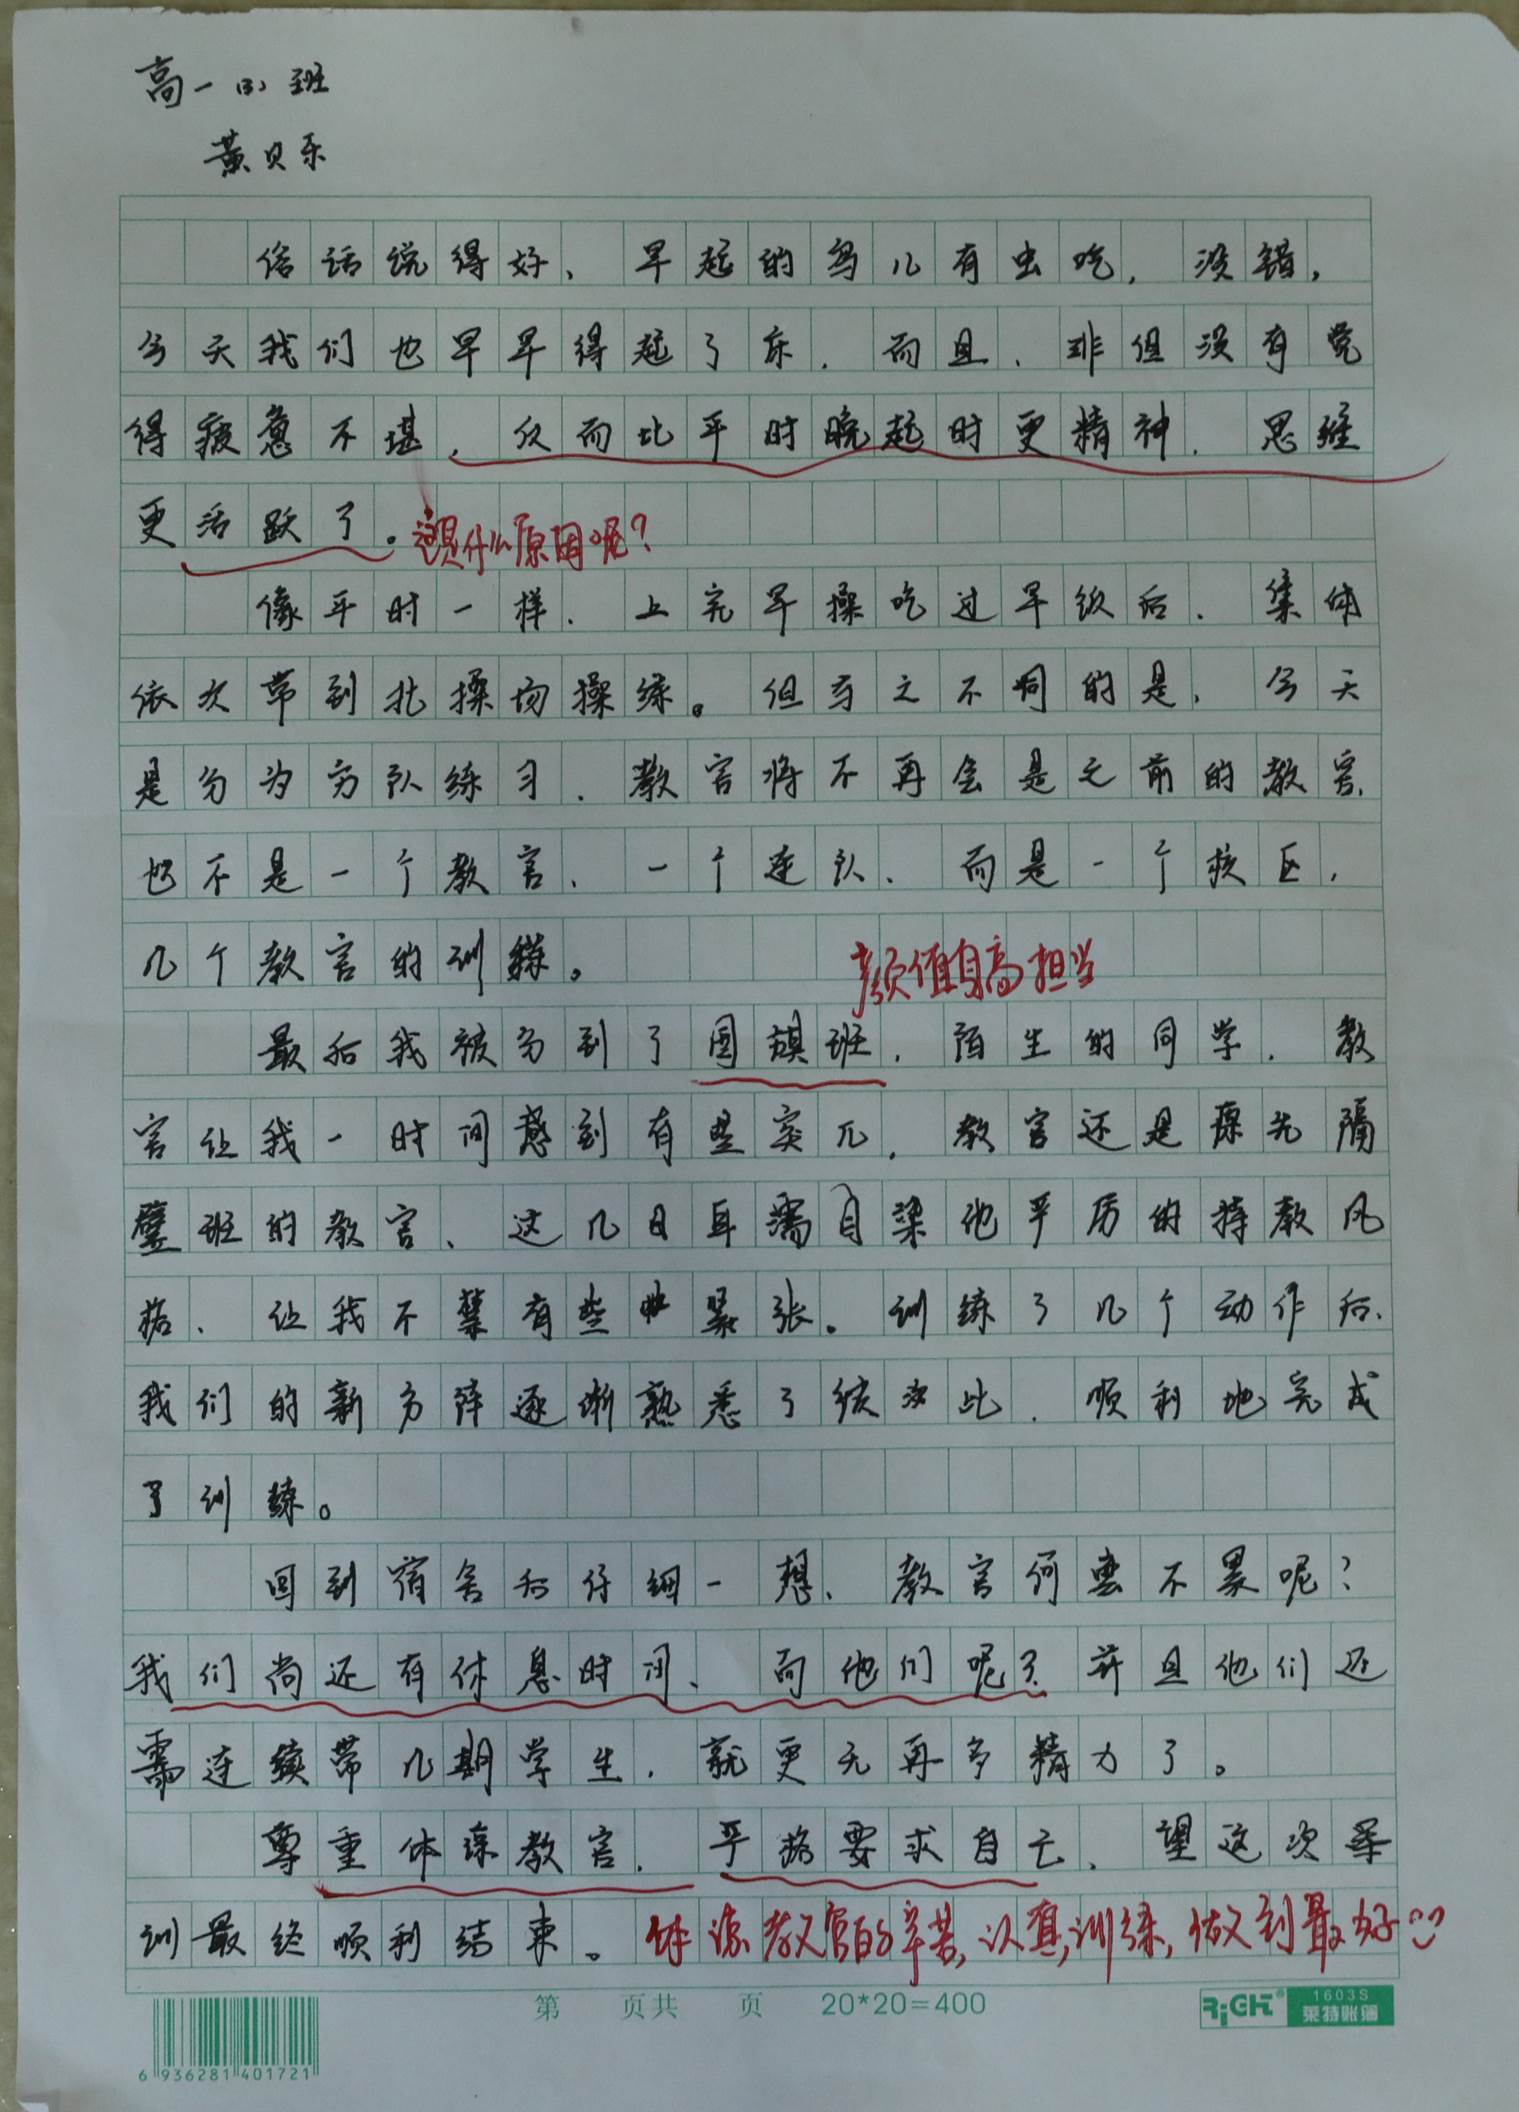 高一（3）班
黄贝乐
俗话说得好、早起的鸟儿有虫吃，没错，
今天我们也早早得起了床，而且，非但没有觉
得疲惫不堪，反而比平时晚起时更精神，思维
更活跃了。这是什么原因呢？
像平时一样，上完早操吃过早饭后，集体
依次带到北操场操练。但与之不同的是，今天
是分为方队练习，教官将不再会是之前的教官，
也不是一个教官、一个连队、而是一个校区，
几个教官的训练。
颜值身高担当
最后我被分到了国旗班，陌生的同学，教
官让我一时间感到有些突兀，教官还是原先隔
壁班的教官、这几日耳濡目染他严厉的持教风
格、让我不禁有些紧张。训练了几个动作后，
我们的新方阵逐渐熟悉了彼此，顺利地完成
了训练。
回到宿舍后仔细一想，教官何尝不累呢？
我们尚还有休息时间、而他们呢？并且他们还
需连续带几期学生，就更无再多精力了。
尊重体谅教官，严格要求自己、望这次军
训最终顺利结束。体谅教官的辛苦，认真训练，做到最好
第 页共 页 20*20=400
RiCH 1603S
莱特账簿
6 936281 401721